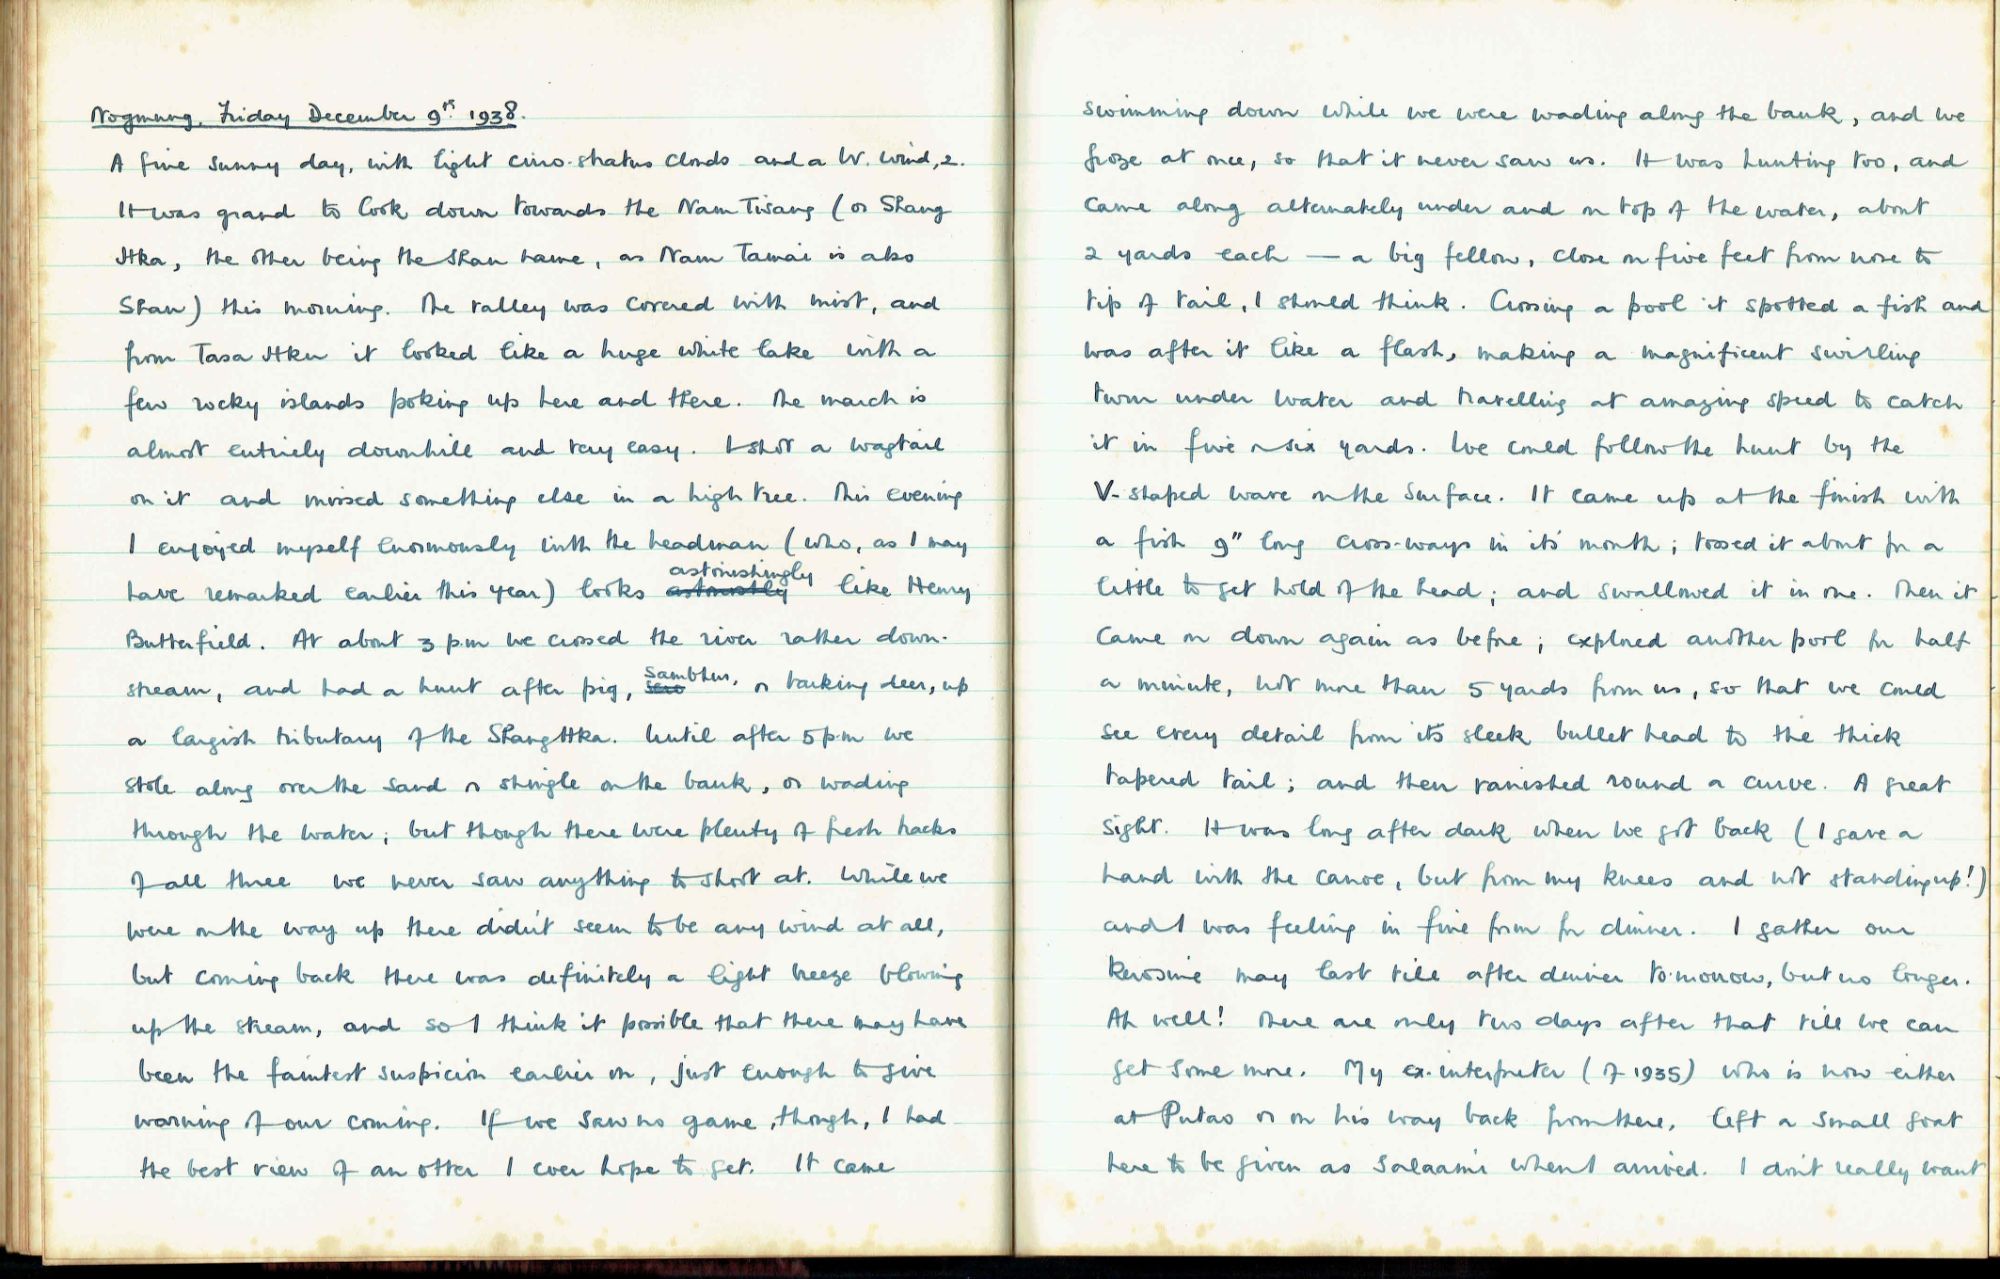 Nogmung, Friday December 9th 1938.
A fine sunny day, with light cirro-stratus clouds and a W. wind, 2.
It was grand to look down towards the Nam Tisang (or Shang
Hka, the other being the Shan name, as Nam Tamai is also
Shan) this morning. The valley was covered with mist, and
from Tasa Hku it looked like a huge white lake with a
few rocky islands poking up here and there. The march is
almost entirely downhill and very easy. I shot a wagtail
on it and missed something else in a high tree. This evening
I enjoyed myself enormously with the headman (who, as I may
have remarked earlier this year) looks astonishingly like Henry
Butterfield. At about 3 p.m we crossed the river rather down-
stream, and had a hunt after pig, sambhur, or barking deer, up
a largish tributary of the Shang Hka. Until after 5 p.m we
stole along over the sand or shingle on the bank, or wading
through the water; but though there were plenty of fresh tracks
of all three we never saw anything to shoot at. While we
were on the way up there didn't seem to be any wind at all,
but coming back there was definitely a light breeze blowing
up the stream, and so I think it possible that there may have
been the faintest suspicion earlier on, just enough to give
warning of our coming. If we saw no game, though, I had
the best view of an otter I ever hope to get. It came
swimming down while we were wading along the bank, and we
froze at once, so that it never saw us. It was hunting too, and
came along alternately under and on top of the water, about
2 yards each — a big fellow, close on five feet from nose to
tip of tail, I should think. Crossing a pool it spotted a fish and
was after it like a flash, making a magnificent swirling
turn under water and travelling at amazing speed to catch
it in five or six yards. We could follow the hunt by the
V-shaped wave on the surface. It came up at the finish with
a fish 9" long cross-ways in its mouth; tossed it about for a
little to get hold of the head; and swallowed it in one. Then it
came on down again as before; explored another pool for half
a minute, not more than 5 yards from us, so that we could
see every detail from its sleek bullet head to the thick
tapered tail; and then vanished round a curve. A great
sight. It was long after dark when we got back (I gave a
hand with the canoe, but from my knees and not standing up!)
and I was feeling in fine form for dinner. I gather our
kerosine may last till after dinner to-morrow, but no longer.
Ah well! There are only two days after that till we can
get some more. My ex-interpreter (of 1935) who is now either
at Putao or on his way back from there, left a small goat
here to be given as salaami when I arrived. I don't really want